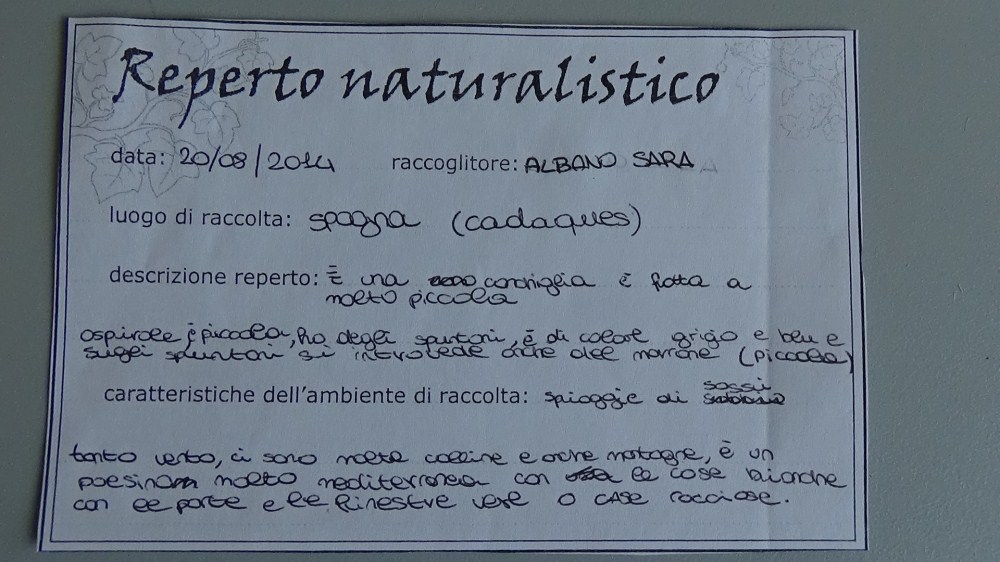 Reperto naturalistico
data: 20/08/2014 raccoglitore: ALBANO SARA
luogo di raccolta: spagna (cadaques)
descrizione reperto: È una conchiglia è fatta a
molto piccola
aspirale è piccola, ha degli spuntoni, è di colore grigio e blu e
sugli spuntoni si introvede anche del marrone (piccola)
caratteristiche dell'ambiente di raccolta: spiaggie di sassi
tanto vento, ci sono molte colline e anche montagne, è un
paesino molto mediterraneo con le case bianche
con le porte e le finestre verse o case rocciose.